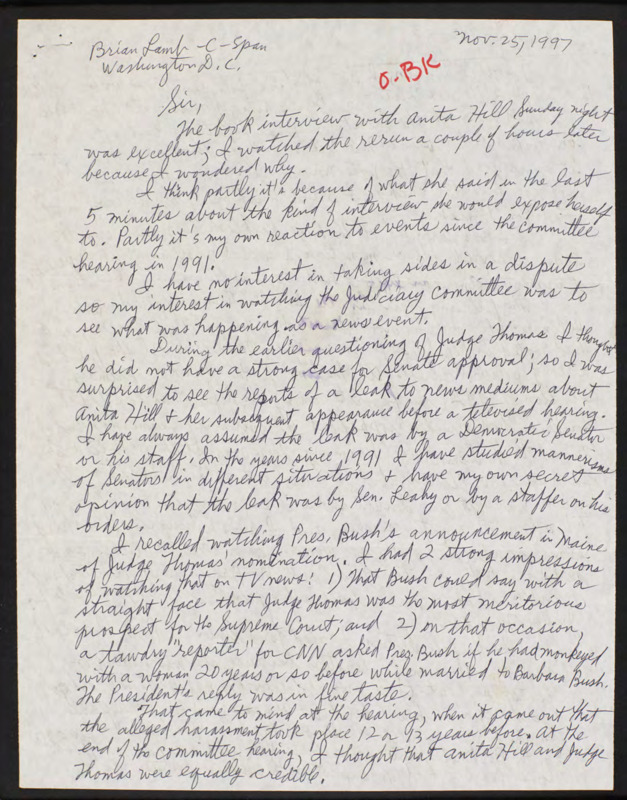 Nov. 25, 1997
Brian Lamb - C-Span
Washington D.C.
O-BK
Sir,
The book interview with Anita Hill Sunday night
was excellent; I watched the rerun a couple of hours later
because I wondered why.
I think partly it's because of what she said in the last
5 minutes about the kind of interview she would expose herself
to. Partly it's my own reaction to events since the committee
hearing in 1991.
I have no interest in taking sides in a dispute
so my interest in watching the Judiciary Committee was to
see what was happening as a news event.
During the earlier questioning of Judge Thomas I thought
he did not have a strong case for Senate approval; so I was
surprised to see the reports of a leak to news mediums about
Anita Hill & her subsequent appearance before a televised hearing.
I have always assumed the leak was by a Democratic Senator
or his staff. In the years since 1991 I have studied mannerisms
of Senators in different situations & have my own secret
opinion that the leak was by Sen. Leahy or by a staffer on his
orders.
I recalled watching Pres. Bush's announcement in Maine
of Judge Thomas' nomination. I had 2 strong impressions
of watching that on TV news: 1) That Bush could say with a
straight face that Judge Thomas was the most meritorious
prospect for the Supreme Court; and 2) on that occasion,
a tawdry "reporter" for CNN asked Pres. Bush if he had monkeyed
with a woman 20 years or so before while married to Barbara Bush.
The President's reply was in fine taste.
That came to mind at the hearing, when it came out that
the alleged harassment took place 12 or 13 years before. At the
end of the committee hearing, I thought that Anita Hill and Judge
Thomas were equally credible.